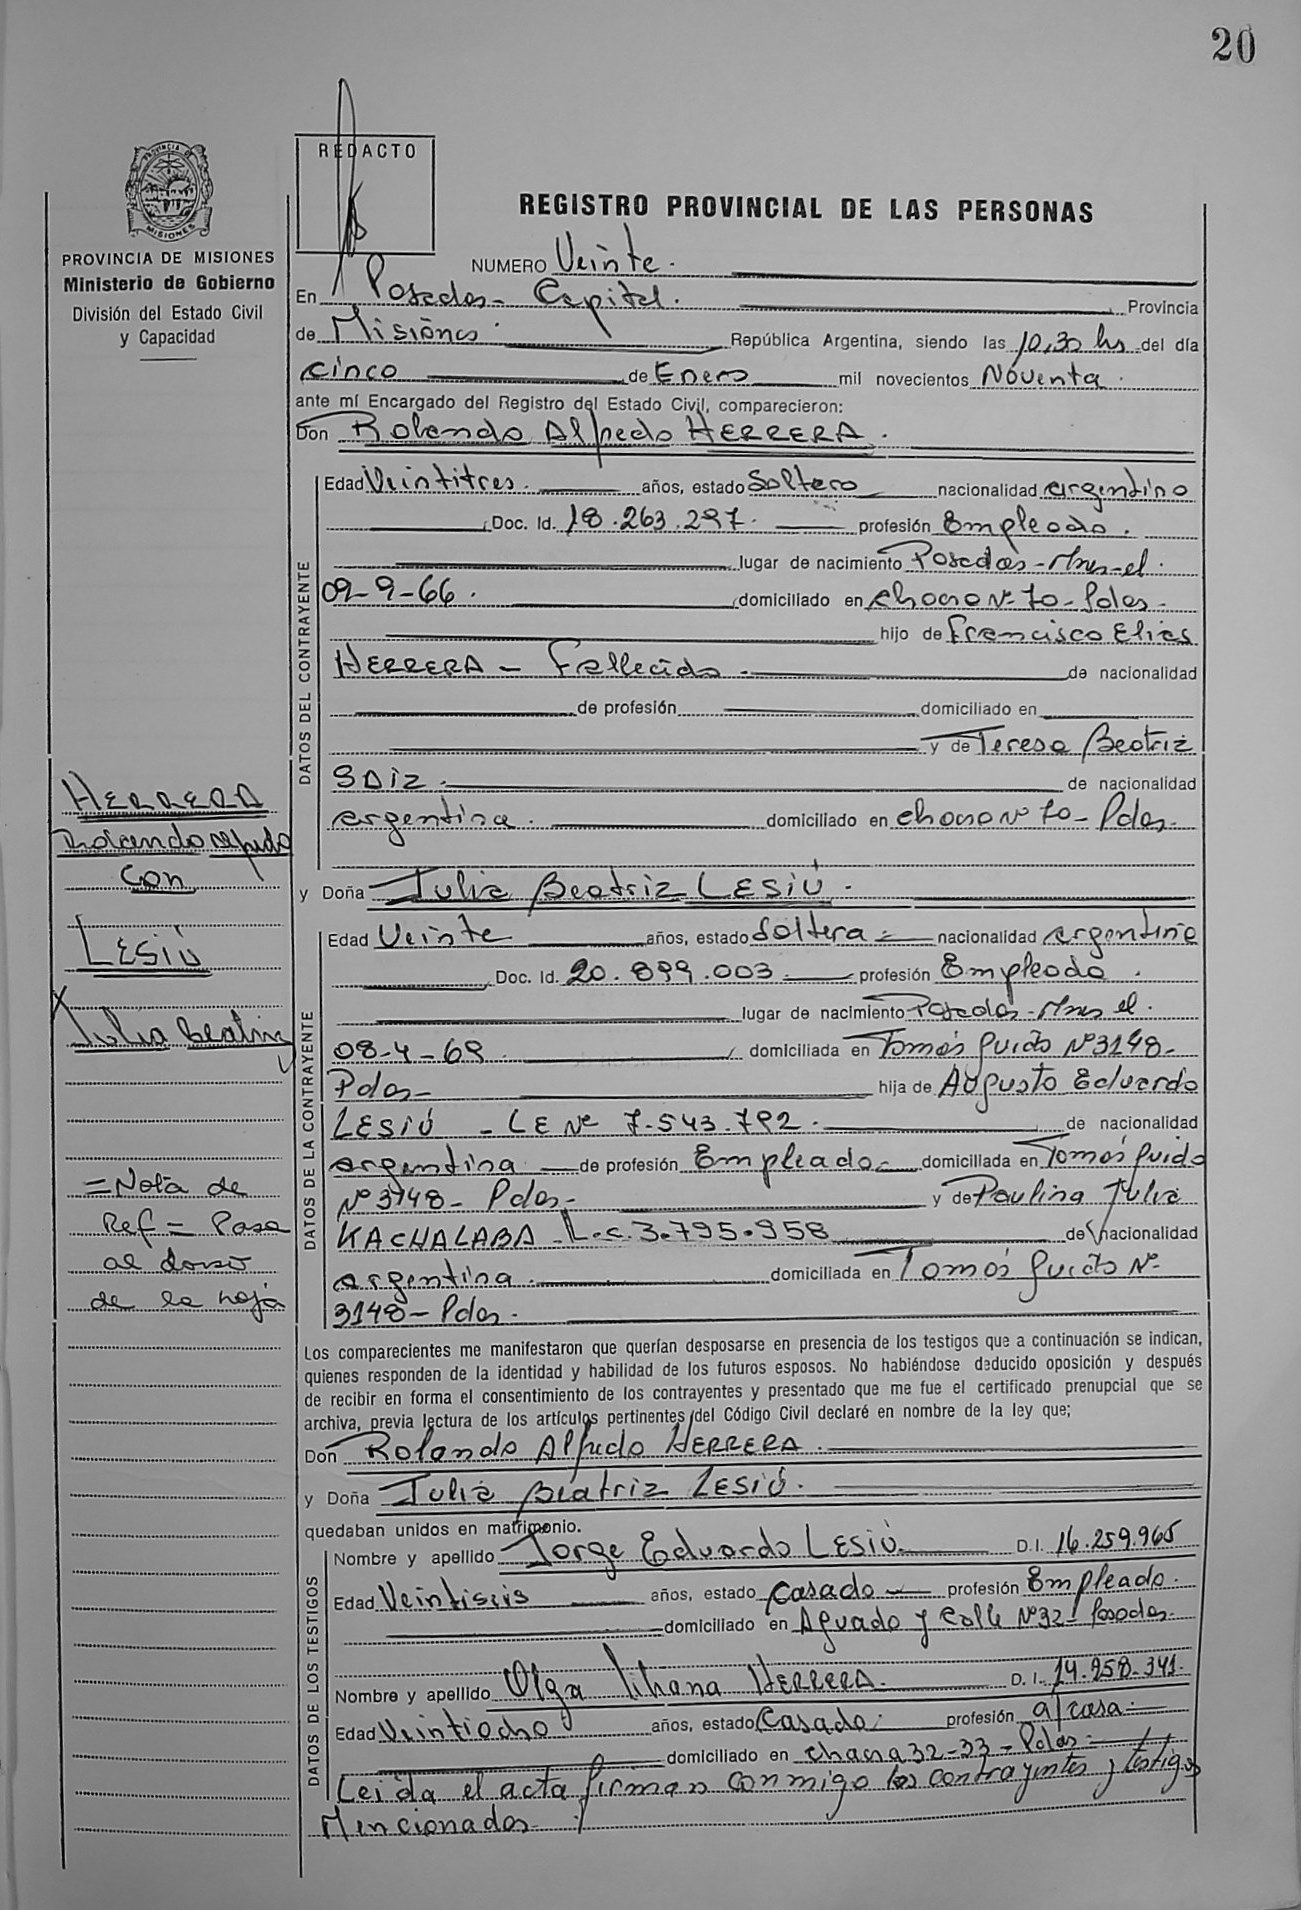 20
REDACTO
PROVINCIA DE MISIONES
PROVINCIA DE MISIONES
Ministerio de Gobierno
División del Estado Civil
y Capacidad
REGISTRO PROVINCIAL DE LAS PERSONAS
NUMERO Veinte.
En Posadas - Capital. Provincia
de Misiones. República Argentina, siendo las 10,30 hs del día
cinco de Enero mil novecientos Noventa.
ante mí Encargado del Registro del Estado Civil, comparecieron:
Don Rolando Alfredo HERRERA.
DATOS DEL CONTRAYENTE
Edad Veintitres. años, estado Soltero nacionalidad argentino
Doc. Id. 18.263.297. profesión Empleado.
lugar de nacimiento Posadas - Mnes - el.
09-9-66. domiciliado en N- 70 - Pdas -
hijo de Francisco Elias
HERRERA - Fallecido - de nacionalidad
de profesión domiciliado en
y de Teresa Beatriz
SAIZ. de nacionalidad
argentina. domiciliado en Nº 70 - Pdas.
y Doña Julia Beatriz LESIÚ.
DATOS DE LA CONTRAYENTE
Edad Veinte años, estado Soltera = nacionalidad argentina
Doc. Id. 20.899.003. profesión Empleada.
lugar de nacimiento Posadas - Mnes el.
08-4-69. domiciliada en Tomás Guido Nº 3148 -
Pdas - hija de Augusto Eduardo
LESIÚ - LE Nº 7.543.792. de nacionalidad
argentina de profesión Empleado - domiciliada en Tomás Guido
Nº 3148 - Pdas - y de Paulina Julia
KACHALABA - L.C. 3.795.958 de nacionalidad
argentina. domiciliada en Tomás Guido Nº
3148 - Pdas.
Los comparecientes me manifestaron que querían desposarse en presencia de los testigos que a continuación se indican,
quienes responden de la identidad y habilidad de los futuros esposos. No habiéndose deducido oposición y después
de recibir en forma el consentimiento de los contrayentes y presentado que me fue el certificado prenupcial que se
archiva, previa lectura de los artículos pertinentes del Código Civil declaré en nombre de la ley que;
Don Rolando Alfredo HERRERA.
y Doña Julia Beatriz LESIÚ.
quedaban unidos en matrimonio.
DATOS DE LOS TESTIGOS
Nombre y apellido Jorge Eduardo LESIÚ. D.I. 16.259.965
Edad Veintiseis años, estado Casado - profesión Empleado.
domiciliado en Aguado y Calle Nº 32 - Posadas.
Nombre y apellido Olga Liliana HERRERA. D.I. 14.958.341.
Edad Veintiocho años, estado Casada. profesión a/casa -
domiciliado en chacra 32-33 - Pdas -
Leida el acta firman conmigo los contrayentes y testigos
Mencionados -
HERRERA
Rolando Alfredo
con
LESIÚ
Julia Beatriz
= Nota de
Ref = Pasa
al dorso
de la hoja